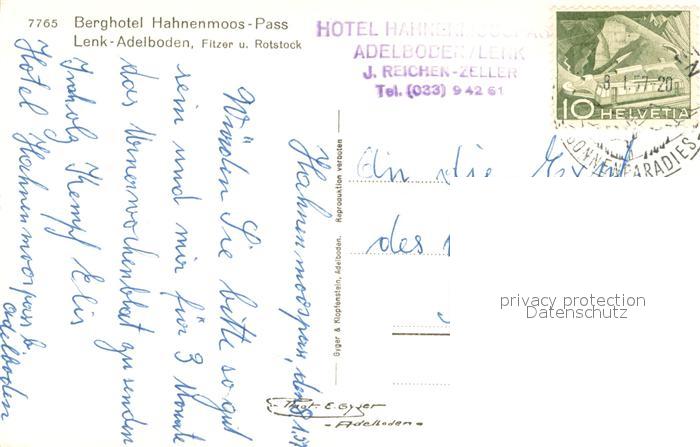 7765 Berghotel Hahnenmoos-Pass
Lenk-Adelboden, Fitzer u. Rotstock
HOTEL HAHNENMOOSPASS
ADELBODEN/LENK
J. REICHEN-ZELLER
Tel. (033) 9 42 61
8. I. 57-20
10 HELVETIA
SONNENPARADIES
Hahnenmoospass, den 8.1.57
Würden Sie bitte so gut
sein und mir für 3 Monate
das zu senden
Kempf Elis
Hotel Hahnenmoospass b/
Adelboden
An die
des
Reproduktion verboten
Gyger & Klopfenstein, Adelboden.
Phot. E. Gyger
- Adelboden -
privacy protection
Datenschutz